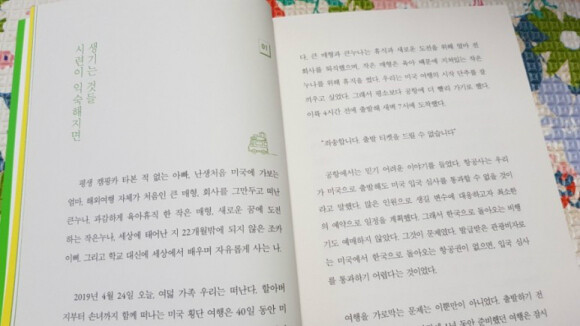 시련이 익숙해지면
생기는 것들
01
평생 캠핑카 타본 적 없는 아빠, 난생처음 미국에 가보는
엄마, 해외여행 자체가 처음인 큰 매형, 회사를 그만두고 떠난
큰누나, 과감하게 육아휴직 한 작은 매형, 새로운 꿈에 도전
하는 작은누나, 세상에 태어난 지 22개월밖에 되지 않은 조카
이빤, 그리고 학교 대신에 세상에서 배우며 자유롭게 사는 나.
2019년 4월 24일 오늘, 여덟 가족 우리는 떠난다. 할아버
지부터 손녀까지 함께 떠나는 미국 횡단 여행은 40일 동안 미
다. 큰 매형과 큰누나는 휴식과 새로운 도전을 위해 얼마 전
회사를 퇴직했으며, 작은 매형은 육아 때문에 지쳐있는 작은
누나를 위해 휴직을 했다. 우리는 미국 여행의 시작 단추를 잘
끼우고 싶었다. 그래서 평소보다 공항에 더 빨리 가기로 했다.
이륙 4시간 전에 출발해 새벽 7시에 도착했다.
"죄송합니다. 출발 티켓을 드릴 수 없습니다"
공항에서는 믿기 어려운 이야기를 들었다. 항공사는 우리
가 미국으로 출발해도 미국 입국 심사를 통과할 수 없을 것이
라고 말했다. 많은 인원으로 생길 변수에 대응하고자 최소한
의 예약으로 일정을 계획했다. 그래서 한국으로 돌아오는 비행
기도 예매하지 않았다. 그것이 문제였다. 발급받은 관광비자로
는 미국에서 한국으로 돌아오는 항공권이 없으면, 입국 심사
를 통과하기 어렵다는 것이었다.
여행을 가로막는 문제는 이뿐만이 아니었다. 출발하기 전
년 동안 준비했던 여행은 잠시